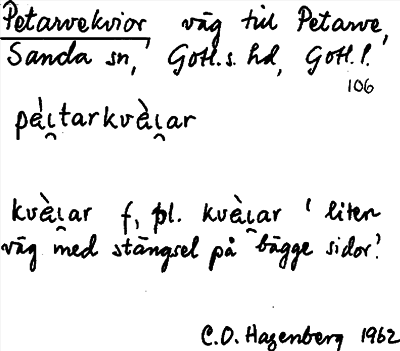 Petarvekvior väg till Petarve,
Sanda sn, Gotl. s. hd, Gotl. l.
106
pὲι̯tarkvὲι̯ar
kvὲι̯ar f, pl. kvὲι̯ar 'liten
väg med stängsel på bägge sidor'.
C.O. Hagenberg 1962